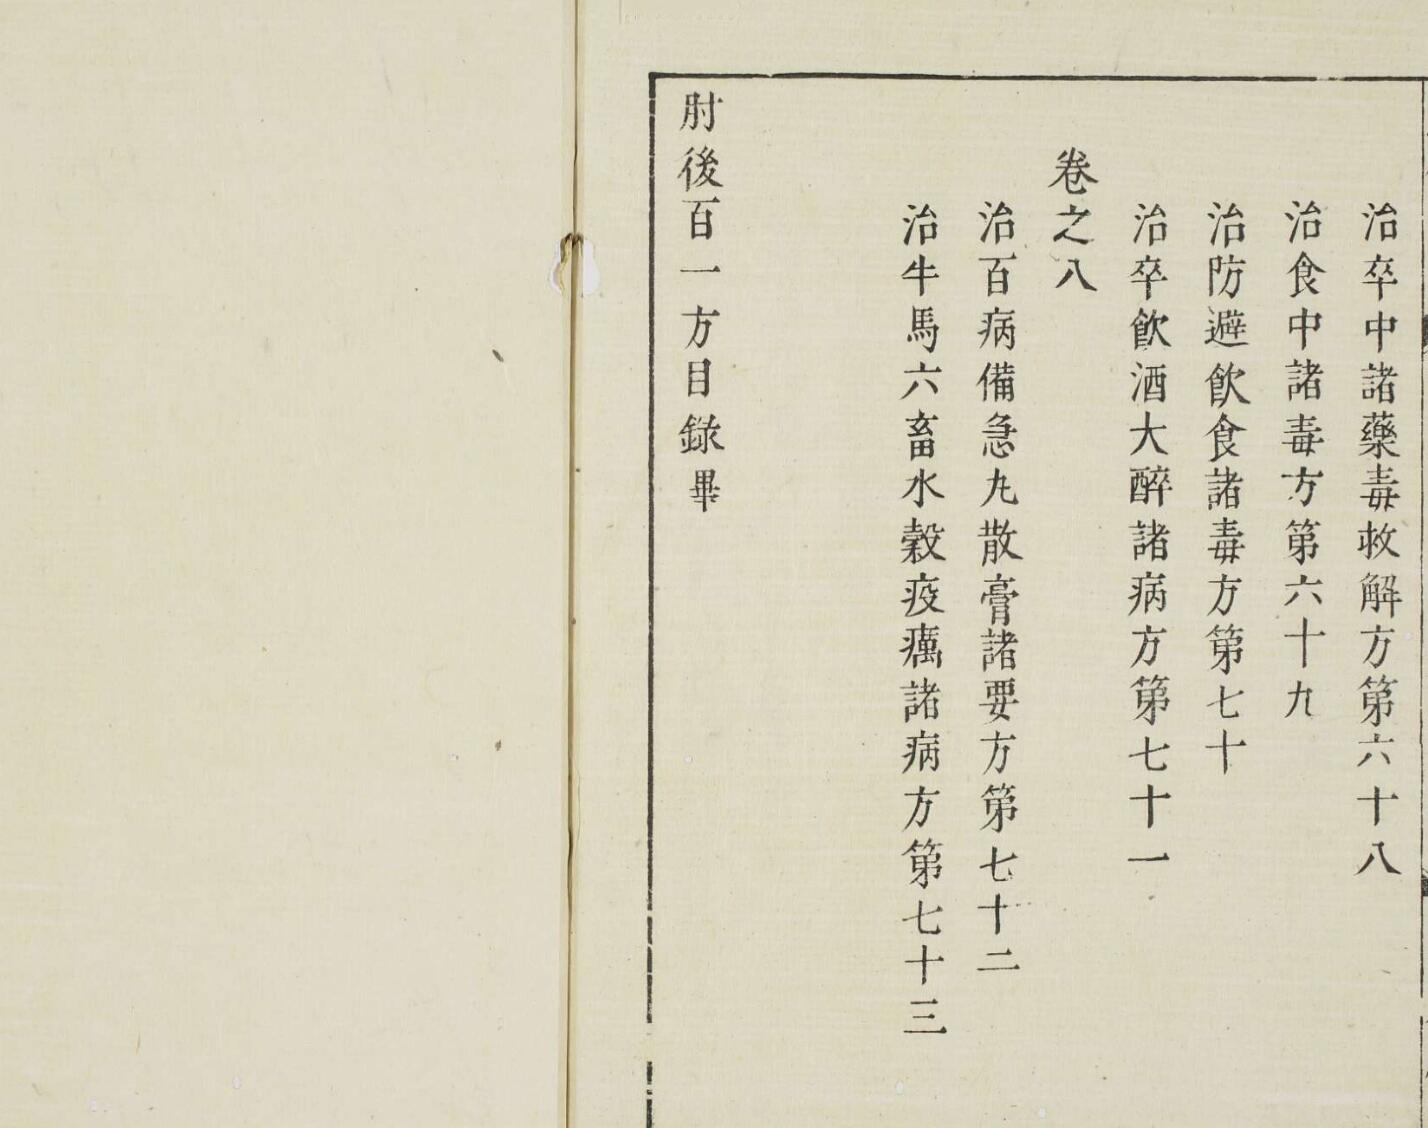 治卒中諸藥毒救解方第六十八
治食中諸毒方第六十九
治防避飲食諸毒方第七十
治卒飲酒大醉諸病方第七十一
卷之八
治百病備急丸散膏諸要方第七十二
治牛馬六畜水穀疫癘諸病方第七十三
肘後百一方目錄畢